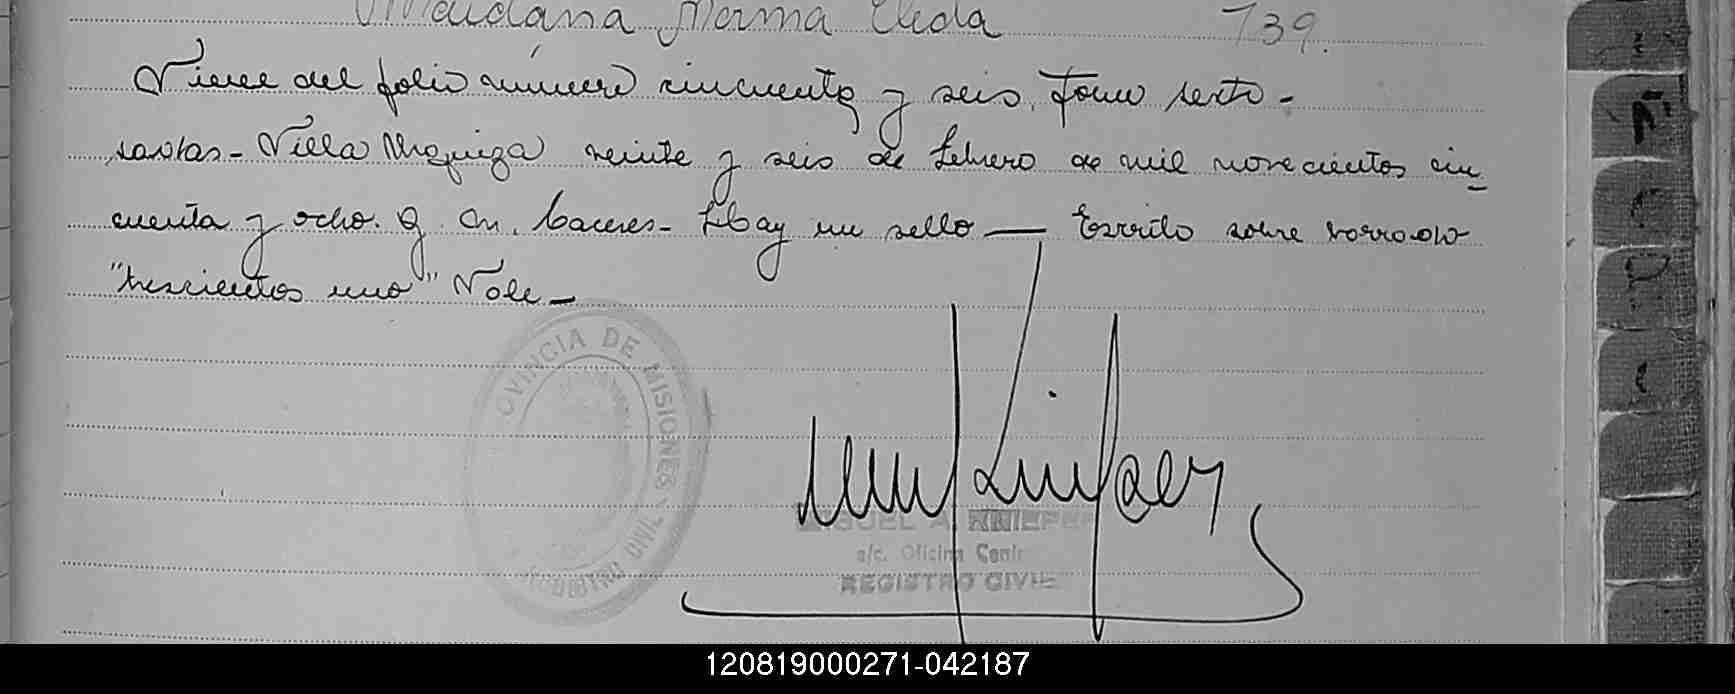 Maidana Norma Elida 739.
Viene del folio número cincuenta y seis. Tomo sexto -
Villa Urquiza veinte y seis de Febrero de mil novecientos cin-
cuenta y ocho. G. Cn. Caceres - Hay un sello — Escrito sobre borrado
"trescientos uno" Vale -
PROVINCIA DE MISIONES
REGISTRO CIVIL
MIGUEL A. KNIEPER
a/c. Oficina Centr
REGISTRO CIVIL
120819000271-042187